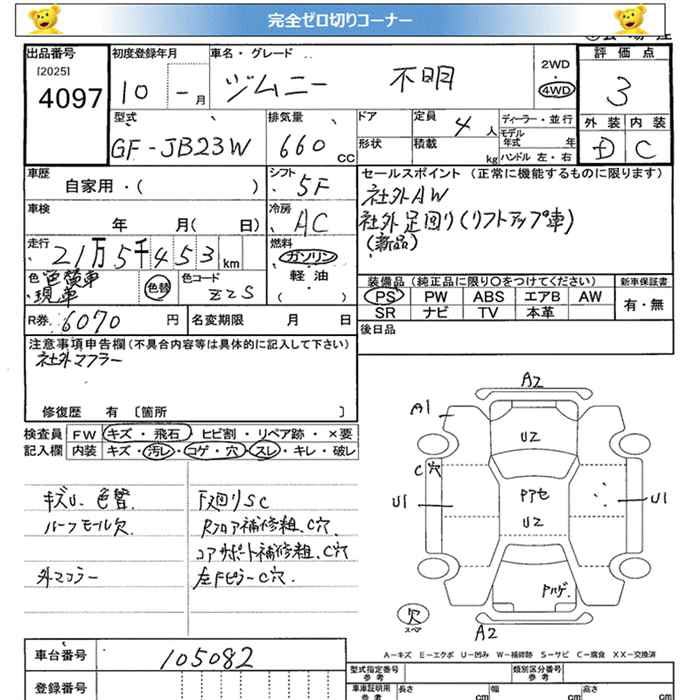 完全ゼロ切りコーナー
出品番号
[2025]
4097
初度登録年月
10 - 月
車名・グレード
ジムニー 不明
2WD
4WD
評価点
3
外装 内装
D C
型式
GF-JB23W
排気量
660 CC
ドア
形状
定員 4 人
積載 kg
ディーラー・並行
モデル年式 年
ハンドル 左・右
車歴
自家用・( )
シフト
5F
車検
年 月( 日)
冷房
AC
走行
21万5千453 km
燃料
ガソリン
軽・油
( )
色 色替車
現車
色替
色コード
ZZS
R券 6070 円
名変期限 月 日
セールスポイント(正常に機能するものに限ります)
社外AW
社外足回り(リフトアップ車)
(新品)
装備品(純正品に限り〇をつけてください)
PS PW ABS エアB AW
SR ナビ TV 本革
新車保証書
有・無
後日品
注意事項申告欄(不具合内容等は具体的に記入して下さい)
社外マフラー
修復歴 有 〔箇所 〕
検査員
記入欄
FW キズ・飛石・ヒビ割・リペア跡・×要
内装 キズ・汚レ・コゲ・穴・スレ・キレ・破レ
キズU、色替
パーフモール欠
外マフラー
下廻りSC
Rフロア補修粗、C穴
コアサポート補修粗、C穴
左Fピラー C穴.
A2
A1
U2
C穴
U1
U2
U1
欠
スペア
A2
A-キズ E-エクボ U-凹み W-補修跡 S-サビ C-腐食 XX-交換済
車台番号
105082
登録番号
型式指定番号
参考
類別区分番号
参考
車車証明用
参考
長さ cm
幅 cm
高さ cm